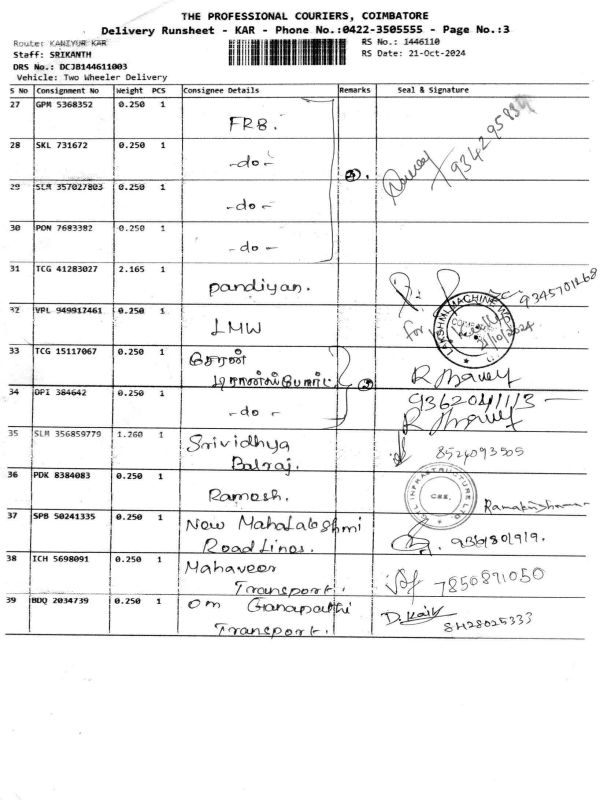 THE PROFESSIONAL COURIERS, COIMBATORE
Delivery Runsheet - KAR - Phone No.:0422-3505555 - Page No.:3
Route: KANIYUR KAR
RS No.: 1446110
Staff: SRIKANTH
RS Date: 21-Oct-2024
DRS No.: DCJB144611003
Vehicle: Two Wheeler Delivery
S No Consignment No Weight PCS Consignee Details Remarks Seal & Signature
27 GPM 5368352 0.250 1
FRB.
28 SKL 731672 0.250 1
-do-
29 SLM 357027803 0.250 1
-do-
30 PON 7683382 0.250 1
-do-
31 TCG 41283027 2.165 1
pandiyan.
9345701268
32 VPL 949917461 0.250 1
LMW
for
LAKSHMI MACHINE WO
21/10/2024
33 TCG 15117067 0.250 1 சேரன்
டிரான்ஸ்போர்ட்
34 DPI 384642 0.250 1
-do-
9362041113
35 SLM 356859779 1.260 1 Srividhya
Balraj.
8524093505
36 PDK 8384083 0.250 1
Ramesh.
INFRASTRUCTURE LTD
CBE.
Ramakrishnan
37 SPB 50241335 0.250 1 New Mahalakshmi
Road Lines.
9361801919.
38 ICH 5698091 0.250 1 Mahaveer
Transport.
7850871050
39 BDQ 2034739 0.250 1 om Ganapathi
Transport.
D. Kaik
8428025333